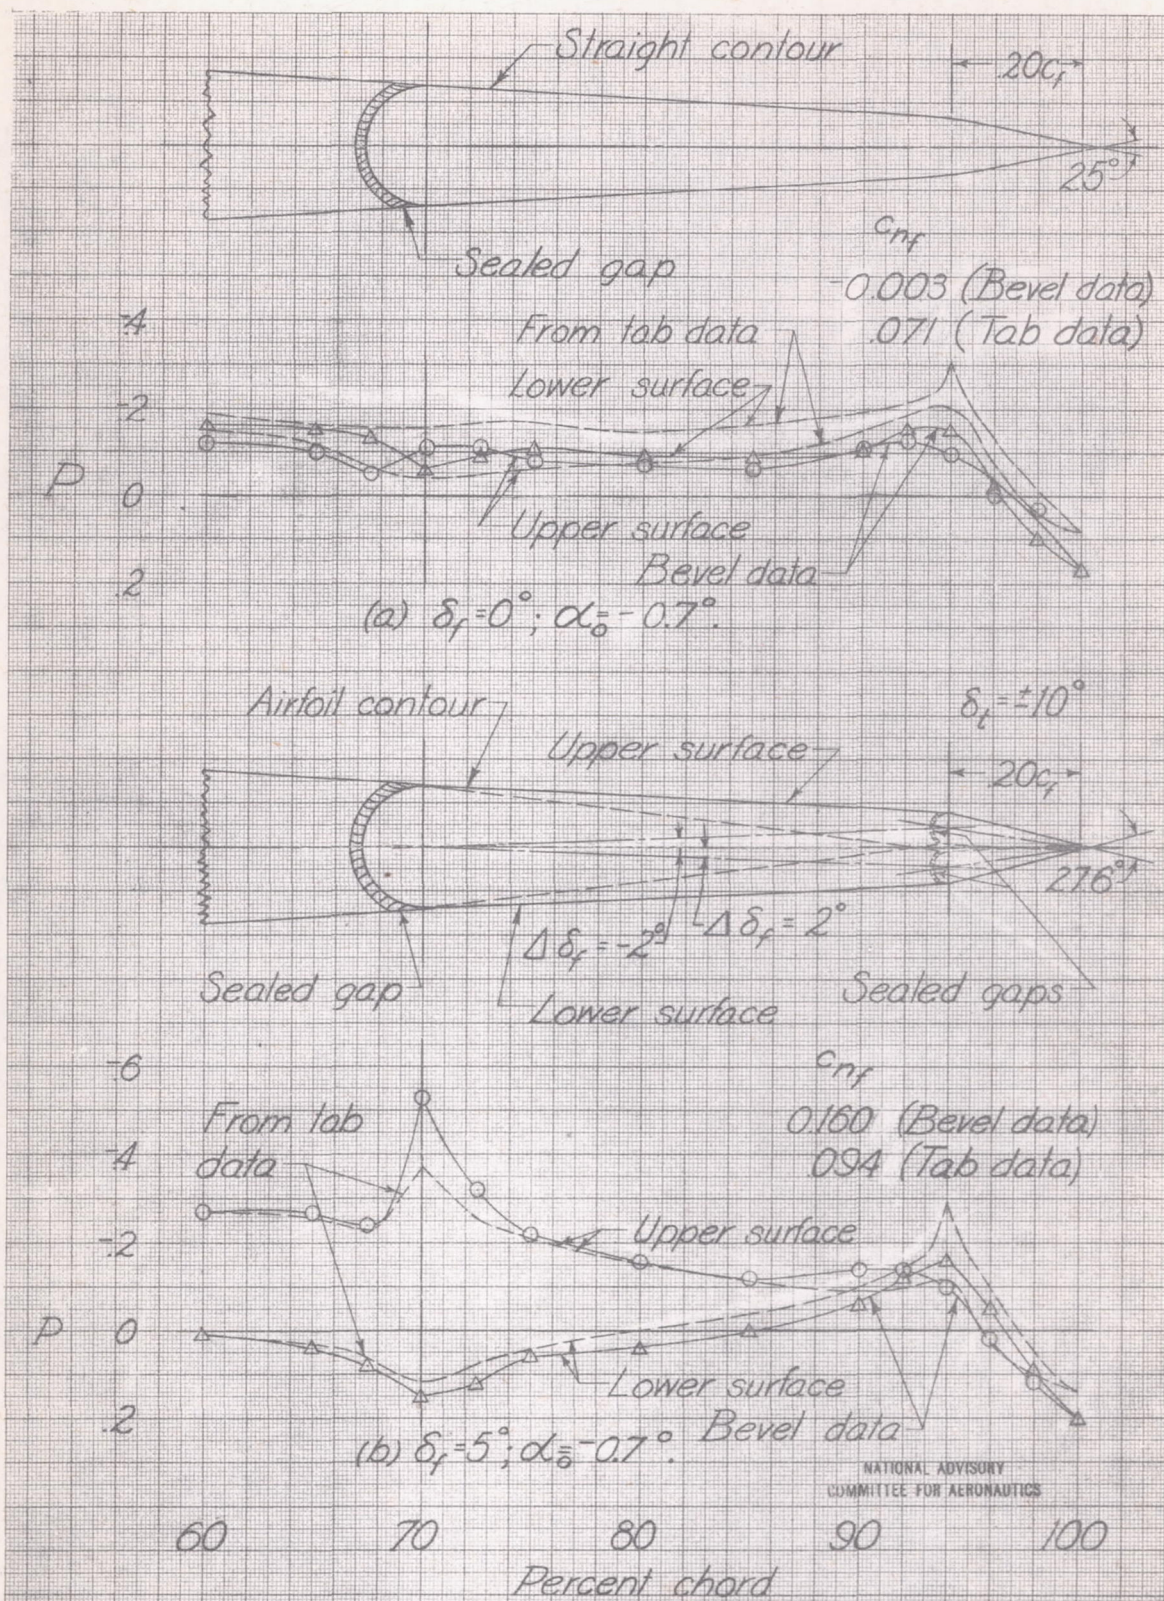 Straight contour
.20c_f
25°
Sealed gap
c_nf
-0.003 (Bevel data)
.071 (Tab data)
From tab data
Lower surface
-.4
-.2
P
0
.2
Upper surface
Bevel data
(a) δ_f=0°; α_o=-0.7°.
Airfoil contour
Upper surface
δ_t=±10°
.20c_f
27.6°
Δδ_f=-2°
Δδ_f=2°
Sealed gap
Lower surface
Sealed gaps
c_nf
0.160 (Bevel data)
.094 (Tab data)
-.6
-.4
-.2
P
0
.2
From tab
data
Upper surface
Lower surface
Bevel data
(b) δ_f=5°; α_o=-0.7°.
NATIONAL ADVISORY
COMMITTEE FOR AERONAUTICS
60 70 80 90 100
Percent chord